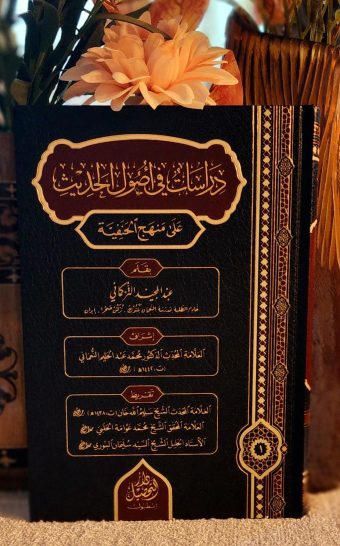 دراسات في أصول الحديث
على منهج الحنفية
بقلم
عبد المجيد التركماني
إشراف
العلامة المحدث الدكتور محمد عبد الحليم النعماني
(ت ١٤٤٢هـ)
تقريظ
العلامة المحدث الشيخ سليم الله خان (ت ١٤٣٨هـ)
العلامة المحقق الشيخ محمد عوامة الحلبي
الأستاذ الجليل الشيخ السيد سلمان الندوي
١